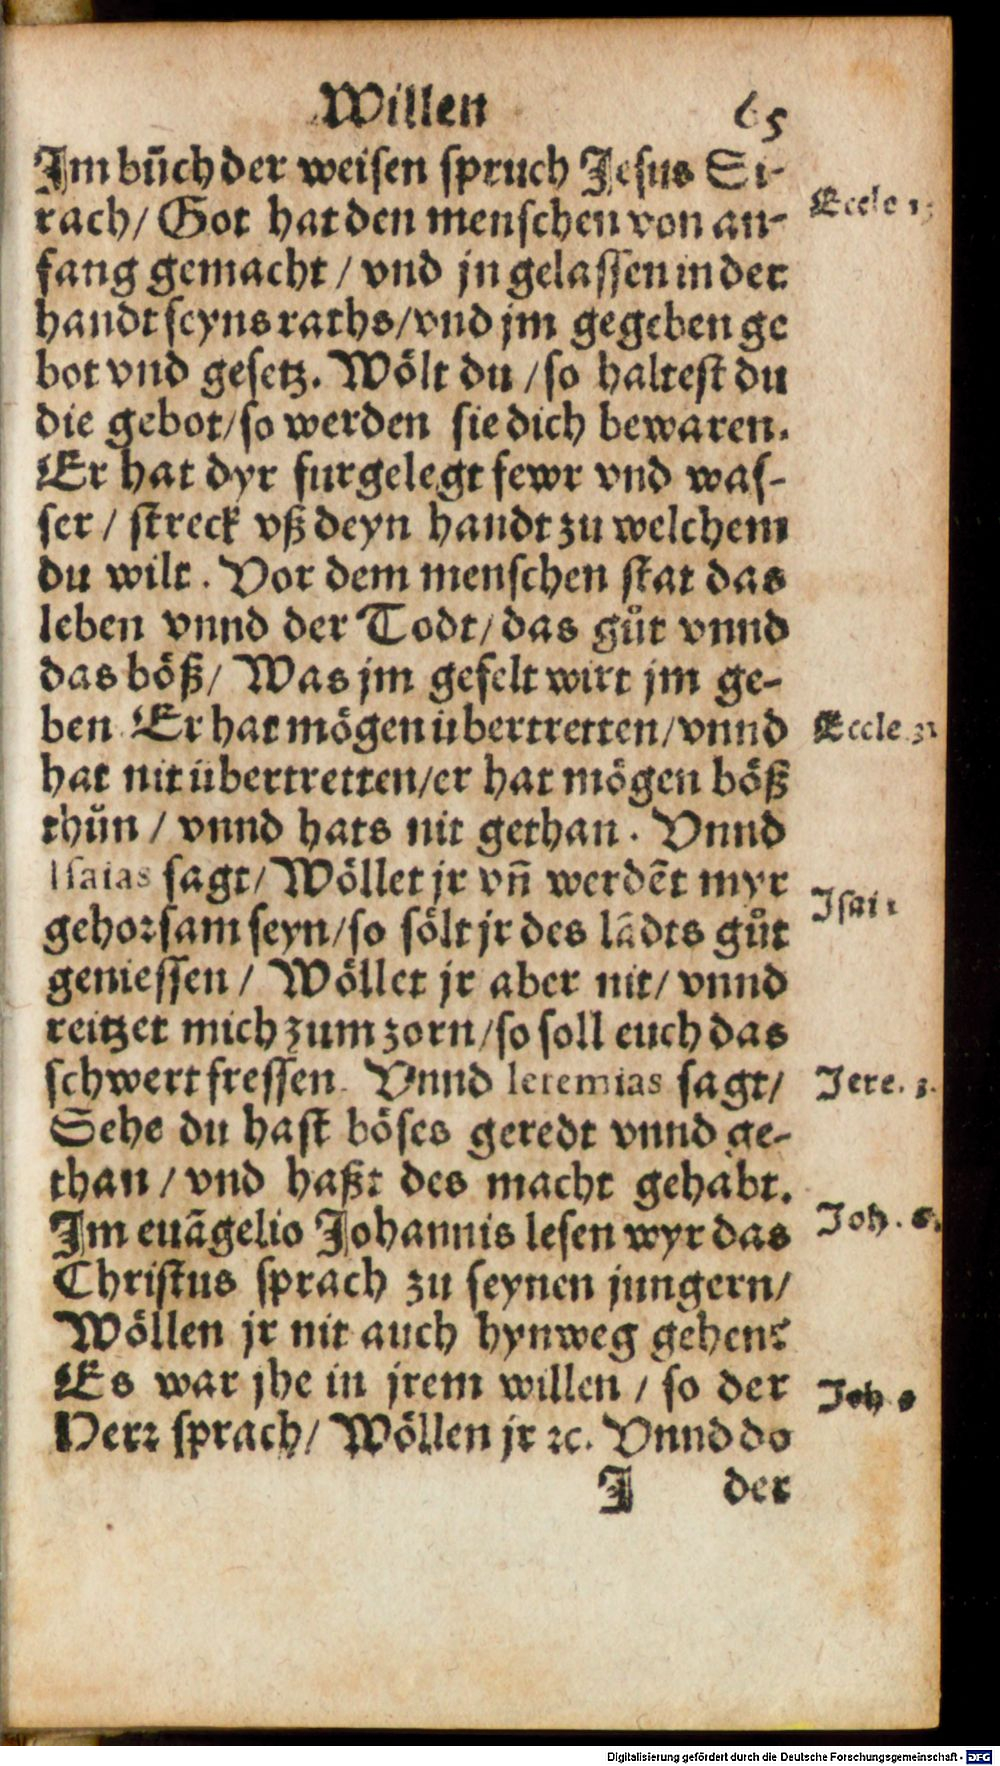 Willen 65
Im bůch der weisen spruch Jesus Si-
rach/ Got hat den menschen von an-
Eccle 15
fang gemacht / vnd jn gelassen in der
handt seyns raths/vnd jm gegeben ge
bot vnd gesetz. Wölt du /so haltest du
die gebot/so werden sie dich bewaren.
Er hat dyr furgelegt fewr vnd was-
ser / streck vß deyn handt zu welchem
du wilt. Vor dem menschen stat das
leben vnnd der Todt/das gůt vnnd
das böß/ Was jm gefelt wirt jm ge-
ben Er hat mögen übertretten/vnnd
Eccle 31
hat nit übertretten/er hat mögen böß
thůn / vnnd hats nit gethan. Vnnd
Isaias sagt/ Wöllet jr vñ werdẽt myr
Isai 1
gehorsam seyn/so sölt jr des lãdts gůt
geniessen / Wöllet jr aber nit/ vnnd
reitzet mich zum zorn/so soll euch das
schwert fressen. Vnnd Ieremias sagt/
Jere. 3.
Sehe du hast böses geredt vnnd ge-
than / vnd haßt des macht gehabt.
Im euãgelio Johannis lesen wyr das
Joh. 6.
Christus sprach zu seynen jungern/
Wöllen jr nit auch hynweg gehen?
Es war jhe in jrem willen / so der
Joh
Herr sprach/ Wöllen jr ꝛc. Vnnd do
I der
Digitalisierung gefördert durch die Deutsche Forschungsgemeinschaft - DFG